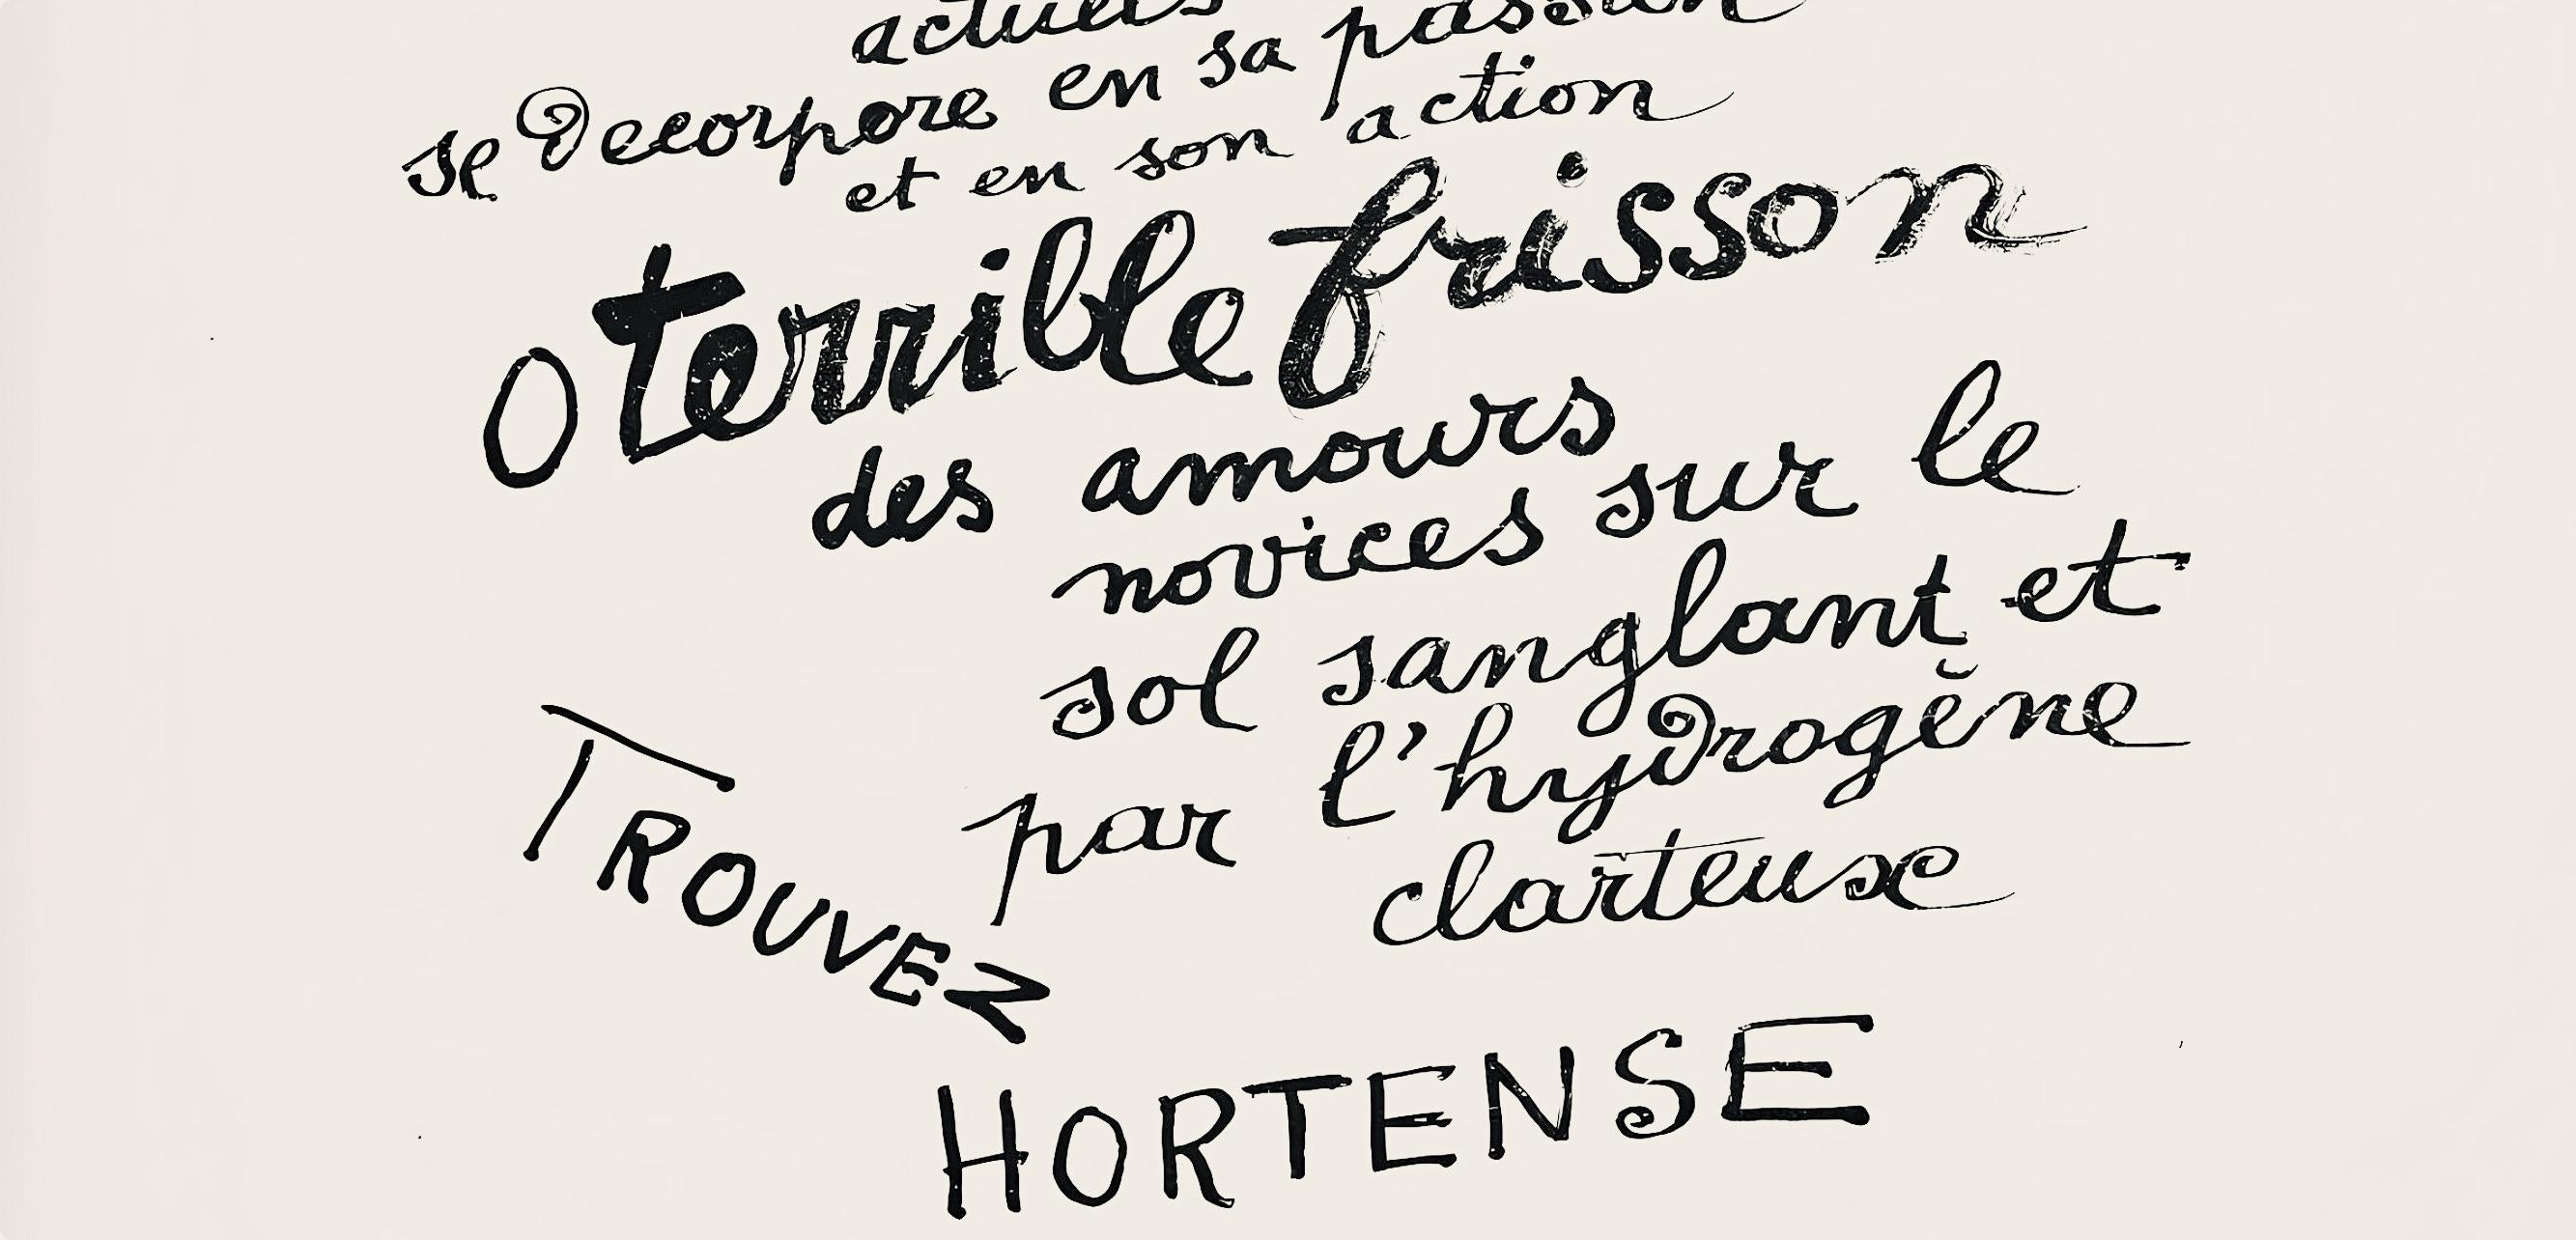 actuels
se Decorpore en sa passion
et en son action
O terrible frisson
des amours
novices sur le
sol sanglant et
par l'hydrogène
clarteuse
TROUVEZ
HORTENSE